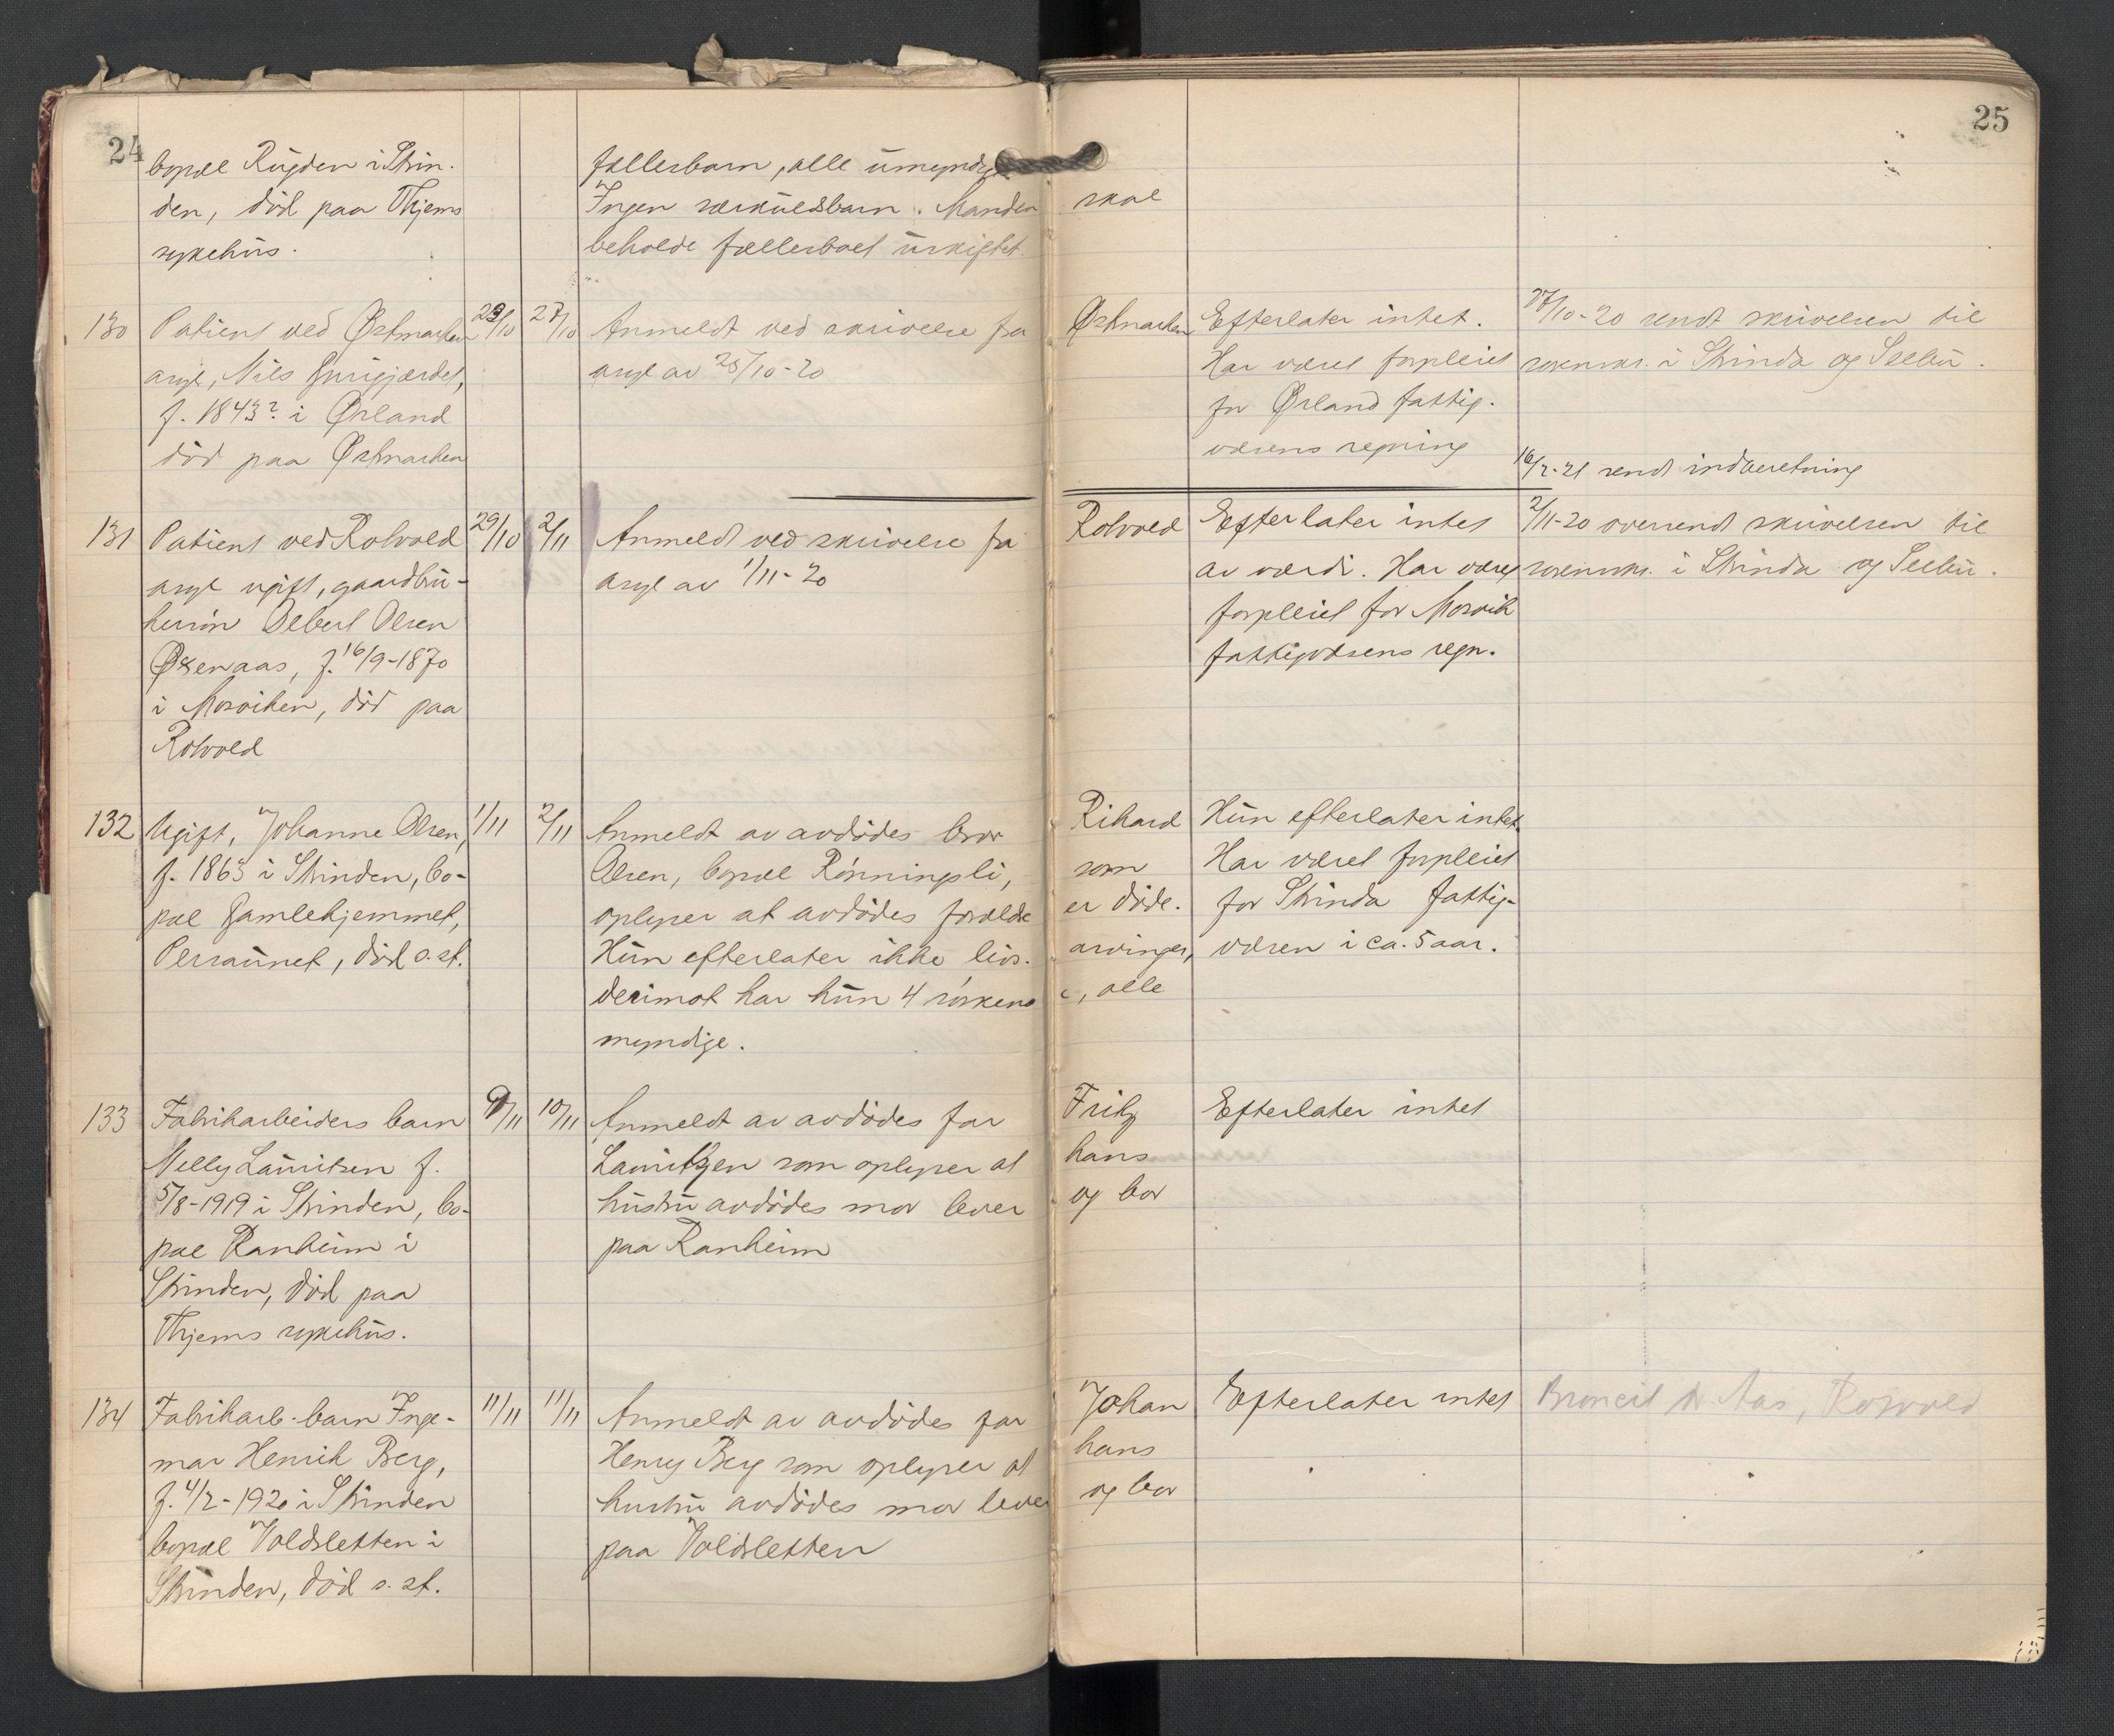 24
bopæl Rügden i Strin-
den, död paa Thjems
sykehus.
fællesbarn, alle umyndige
Ingen særkuldsbarn. Manden
skal
beholde fællesboet uskiftet.
130
Patient ved Østmarken
asyl, Nils
f. 1843? i Ørland
död paa Østmarken
23/10
27/10
Anmeldt ved skrivelse fra
Østmarken
asyl av 25/10-20
Efterlater intet.
Har været forpleiet
for Ørland fattig-
væsens regning
27/10-20 sendt skrivelsen til
sorenskr. i Strinda og Selbu.
16/2-21 sendt indberetning
131
Patient ved Rotvold
asyl ugift, gaardbru-
kersön Albert Olsen
Øxenaas, f. 16/9-1870
i Mosviken, död paa
Rotvold
29/10
2/11
Anmeldt ved skrivelse fra
Rotvold
asyl av 1/11-20
Efterlater intet
av værdi. Har været
forpleiet for Mosvik
fattigvæsens regn.
2/11-20 oversendt skrivelsen til
sorenskr. i Strinda og Selbu.
132
Ugift, Johanne Olsen,
f. 1863 i Strinden, bo-
pæl Gamlehjemmet,
Persaunet, död s. st.
1/11
2/11
Anmeldt av avdödes bror
Rikard
Olsen, bopæl Rönningsli,
som
oplyser at avdödes forældre
er döde.
Hun efterlater ikke livs-
arvinger,
derimot har hun 4 söskene
, alle
myndige.
Hun efterlater intet.
Har været forpleiet
for Strinda fattig-
væsen i ca. 5 aar.
133
Fabrikarbeiders barn
Nelly Lauritsen f.
5/8-1919 i Strinden, bo-
pæl Ranheim i
Strinden, död paa
Thjems sykehus.
9/11
10/11
Anmeldt av avdödes far
Fritz
Lauritzen som oplyser at
hans
hustru avdödes mor lever
og bor
paa Ranheim
Efterlater intet
134
Fabrikarb. barn Inge-
mar Henrik Berg,
f. 4/2-1920 i Strinden
bopæl Voldsletten i
Strinden, död s. st.
11/11
11/11
Anmeldt av avdödes far
Johan
Henry Berg som oplyser at
hans
hustru avdödes mor lever
og bor
paa Voldsletten
Efterlater intet
Aas, Rotvold
25